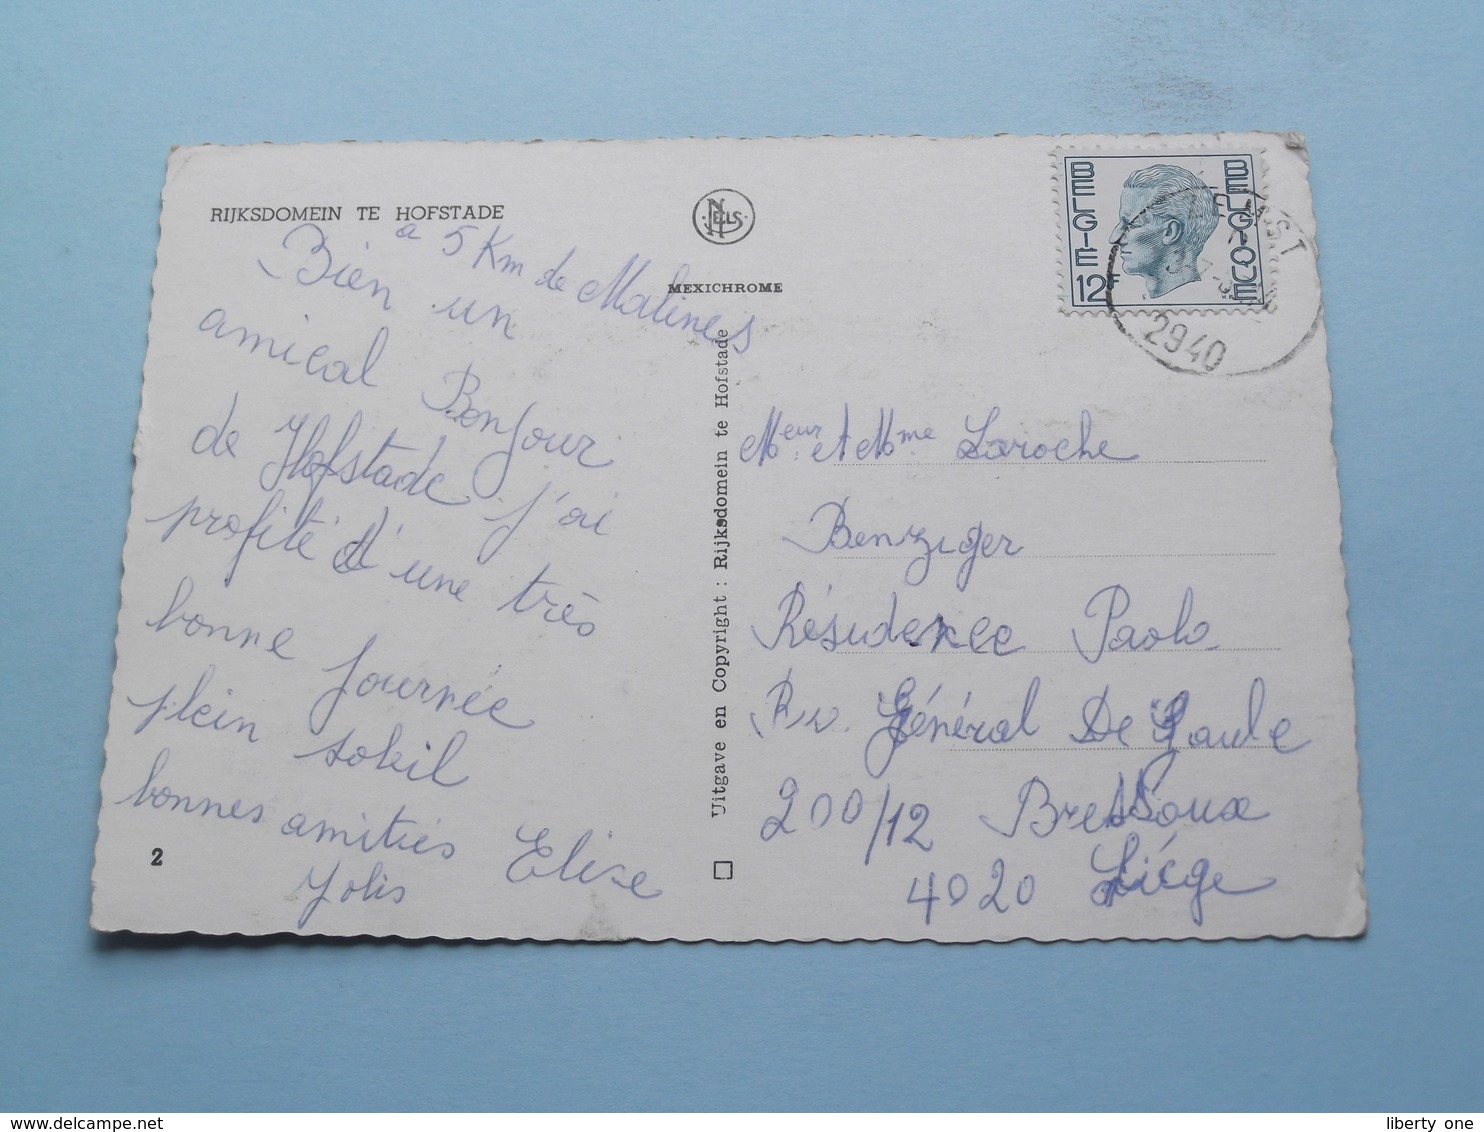 RIJKSDOMEIN TE HOFSTADE
à 5 Km de Malines
Bien un
amical Bonjour
de Hofstade j'ai
profité d'une très
bonne journée
plein soleil
bonnes amitiés Elise
Jolis
2
NELS
MEXICHROME
Uitgave en Copyright : Rijksdomein te Hofstade
BELGIE 12F BELGIQUE
2940
Meur et Mme Laroche
Benziger
Résidence Paolo
Général De Gaule
200/12 Bressoux
4020 Liége
liberty one